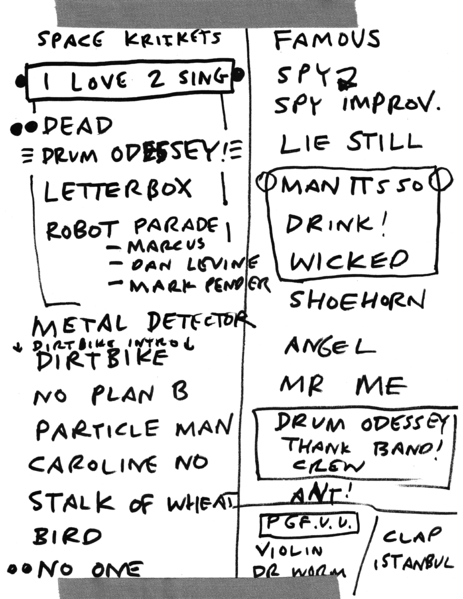 SPACE KRITKETS
I LOVE 2 SING
DEAD
DRUM ODESSEY!
LETTERBOX
ROBOT PARADE
- MARCUS
- DAN LEVINE
- MARK PENDER
METAL DETECTOR
↓ DIRTBIKE INTRO ↓
DIRTBIKE
NO PLAN B
PARTICLE MAN
CAROLINE NO
STALK OF WHEAT
BIRD
NO ONE
FAMOUS
SPY 2
SPY IMPROV.
LIE STILL
MAN ITS SO
DRINK!
WICKED
SHOEHORN
ANGEL
MR ME
DRUM ODESSEY
THANK BAND!
CREW
ANT!
PGF.V.V.
VIOLIN
DR WORM
CLAP
ISTANBUL